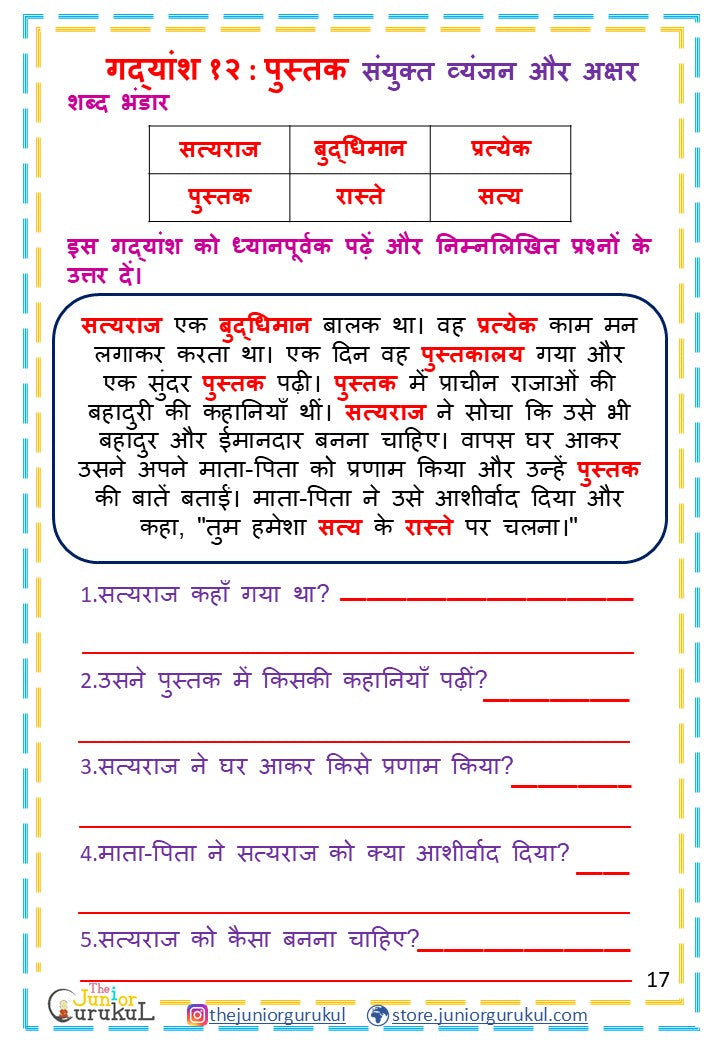 गद्यांश १२ : पुस्तक संयुक्त व्यंजन और अक्षर
शब्द भंडार
सत्यराज बुद्धिमान प्रत्येक
पुस्तक रास्ते सत्य
इस गद्यांश को ध्यानपूर्वक पढ़ें और निम्नलिखित प्रश्नों के
उत्तर दें।
सत्यराज एक बुद्धिमान बालक था। वह प्रत्येक काम मन
लगाकर करता था। एक दिन वह पुस्तकालय गया और
एक सुंदर पुस्तक पढ़ी। पुस्तक में प्राचीन राजाओं की
बहादुरी की कहानियाँ थीं। सत्यराज ने सोचा कि उसे भी
बहादुर और ईमानदार बनना चाहिए। वापस घर आकर
उसने अपने माता-पिता को प्रणाम किया और उन्हें पुस्तक
की बातें बताईं। माता-पिता ने उसे आशीर्वाद दिया और
कहा, "तुम हमेशा सत्य के रास्ते पर चलना।"
1.सत्यराज कहाँ गया था?
2.उसने पुस्तक में किसकी कहानियाँ पढ़ीं?
3.सत्यराज ने घर आकर किसे प्रणाम किया?
4.माता-पिता ने सत्यराज को क्या आशीर्वाद दिया?
5.सत्यराज को कैसा बनना चाहिए?
17
The
Junior
Gurukul
thejuniorgurukul store.juniorgurukul.com